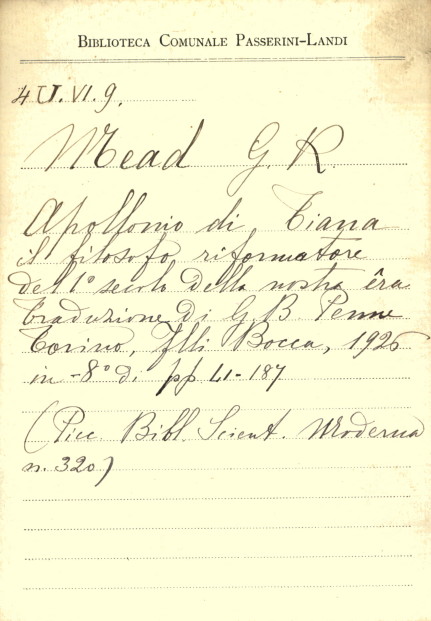 BIBLIOTECA COMUNALE PASSERINI-LANDI
4 U.VI.9.
Mead G. R.
Apollonio di Tiana
il filosofo riformatore
del 1° secolo della nostra êra
Traduzione di G. B. Penne
Torino, Flli Bocca, 1926
in-8° d. pp LI-187
(Picc. Bibl. Scient. Moderna
n. 320)